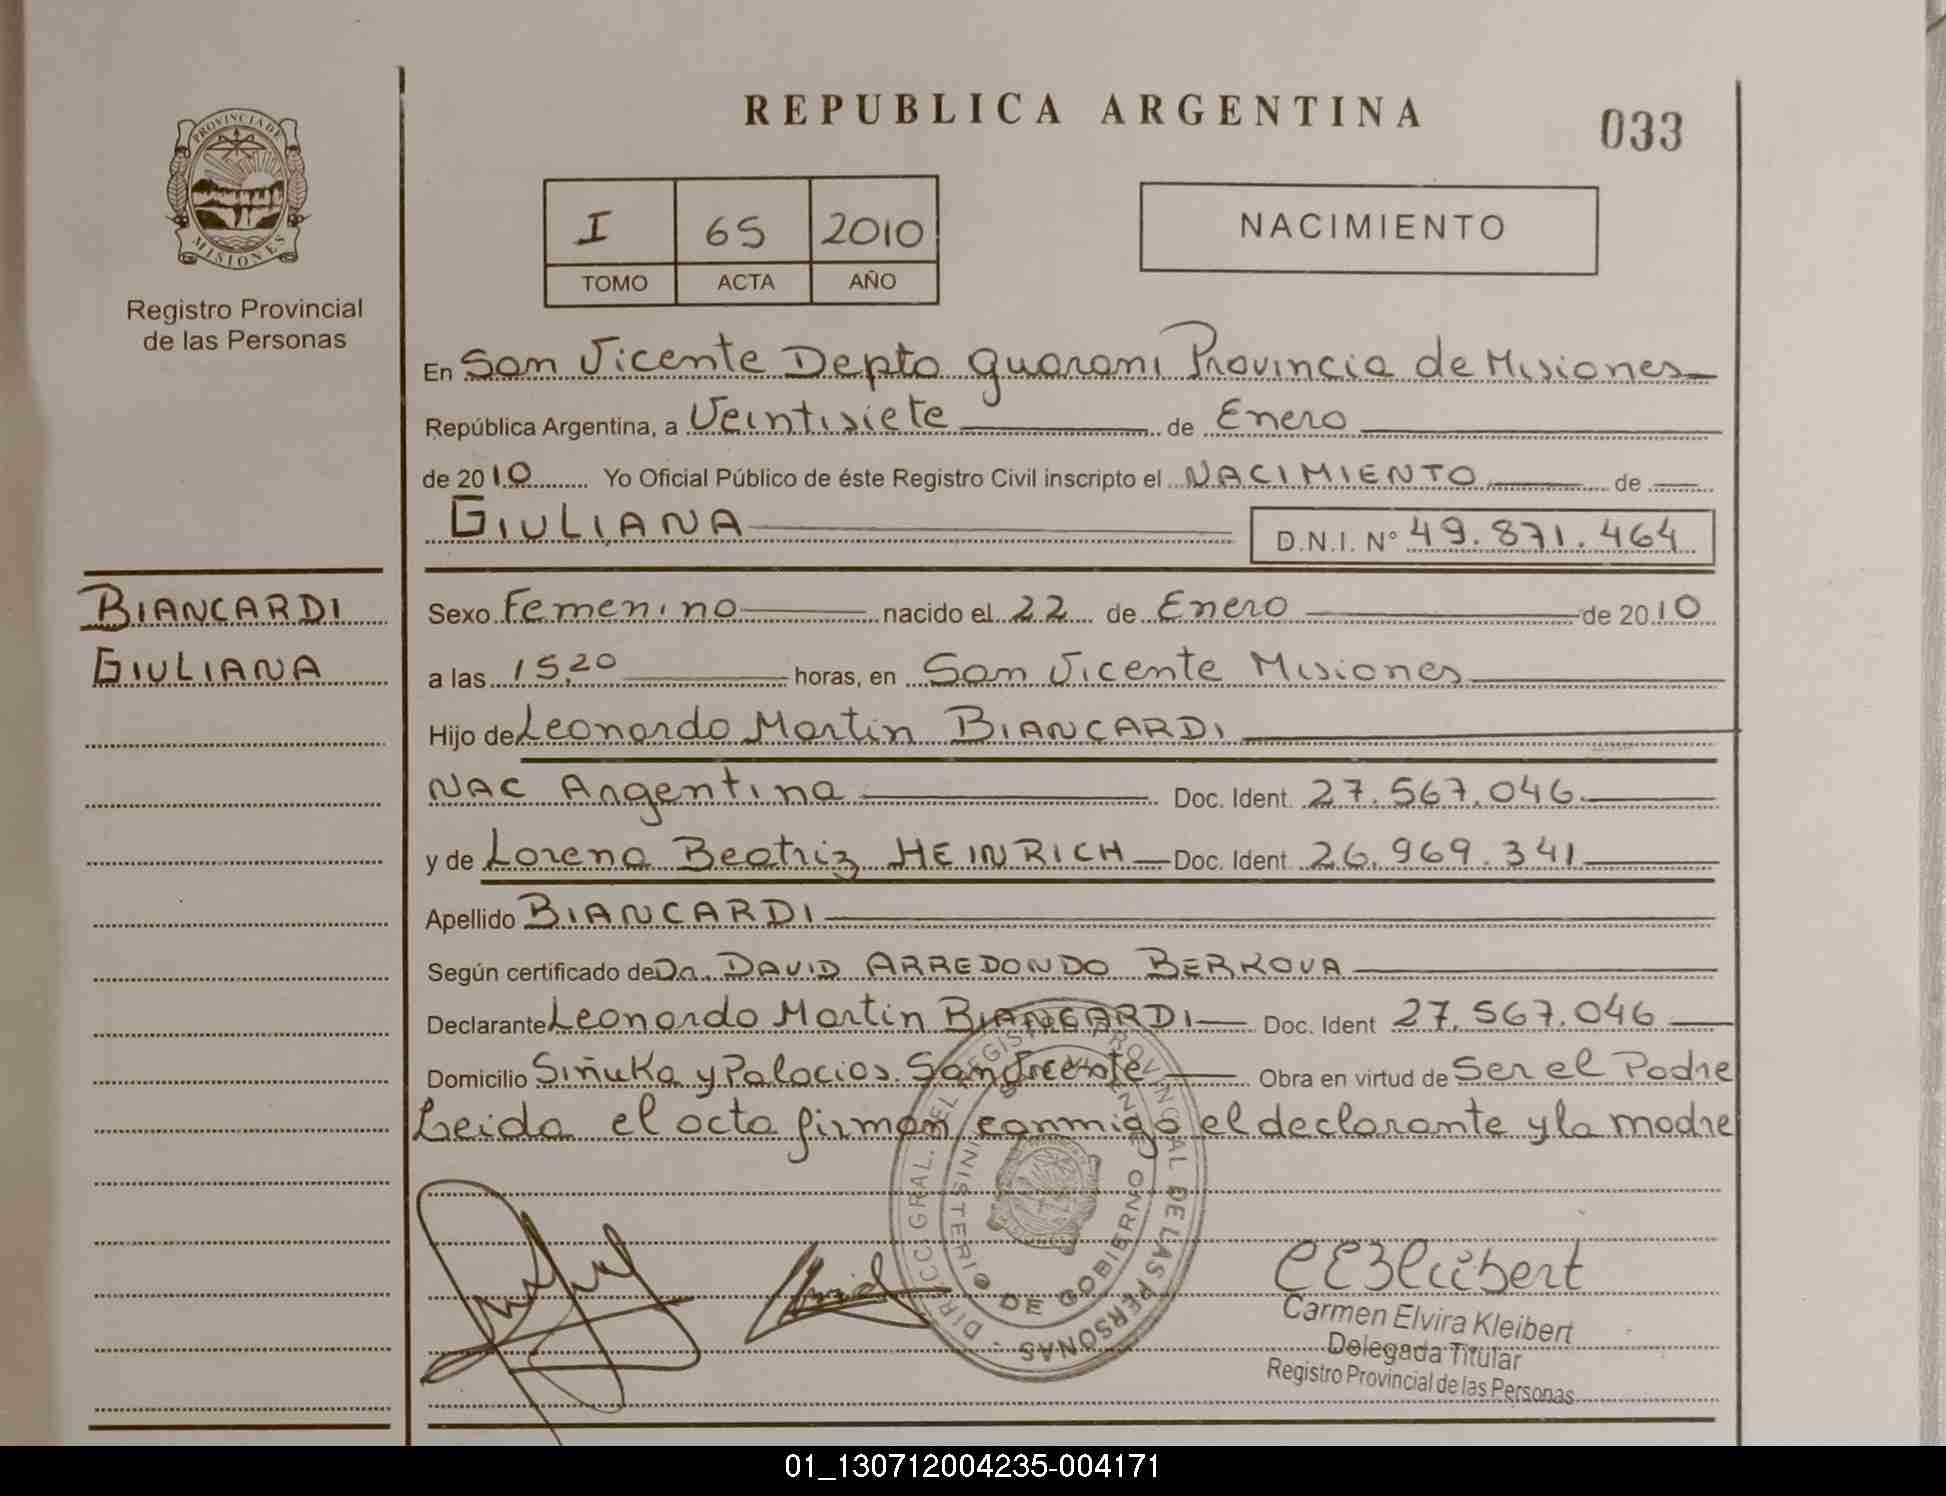 REPUBLICA ARGENTINA
033
PROVINCIA DE
MISIONES
Registro Provincial
de las Personas
I 65 2010
TOMO ACTA AÑO
NACIMIENTO
En San Vicente Depto Guarani Provincia de Misiones
República Argentina, a Veintisiete de Enero
de 2010 Yo Oficial Público de éste Registro Civil inscripto el NACIMIENTO de
GIULIANA D.N.I. N° 49.871.464
BIANCARDI
GIULIANA
Sexo Femenino nacido el 22 de Enero de 2010
a las 15,20 horas, en San Vicente Misiones
Hijo de Leonardo Martin BIANCARDI
NAC Argentina Doc. Ident. 27.567.046
y de Lorena Beatriz HEINRICH Doc. Ident 26.969.341
Apellido BIANCARDI
Según certificado de Dr. DAVID ARREDONDO BERKOVA
Declarante Leonardo Martin BIANCARDI Doc. Ident 27.567.046
Domicilio Siñuka y Palacios. San Vicente Obra en virtud de Ser el Padre
Leida el acta firman conmigo el declarante y la madre
DIRECC. GRAL. DEL REGISTRO PROVINCIAL DE LAS PERSONAS
MINISTERIO DE GOBIERNO
CEKleibert
Carmen Elvira Kleibert
Delegada Titular
Registro Provincial de las Personas
01_130712004235-004171